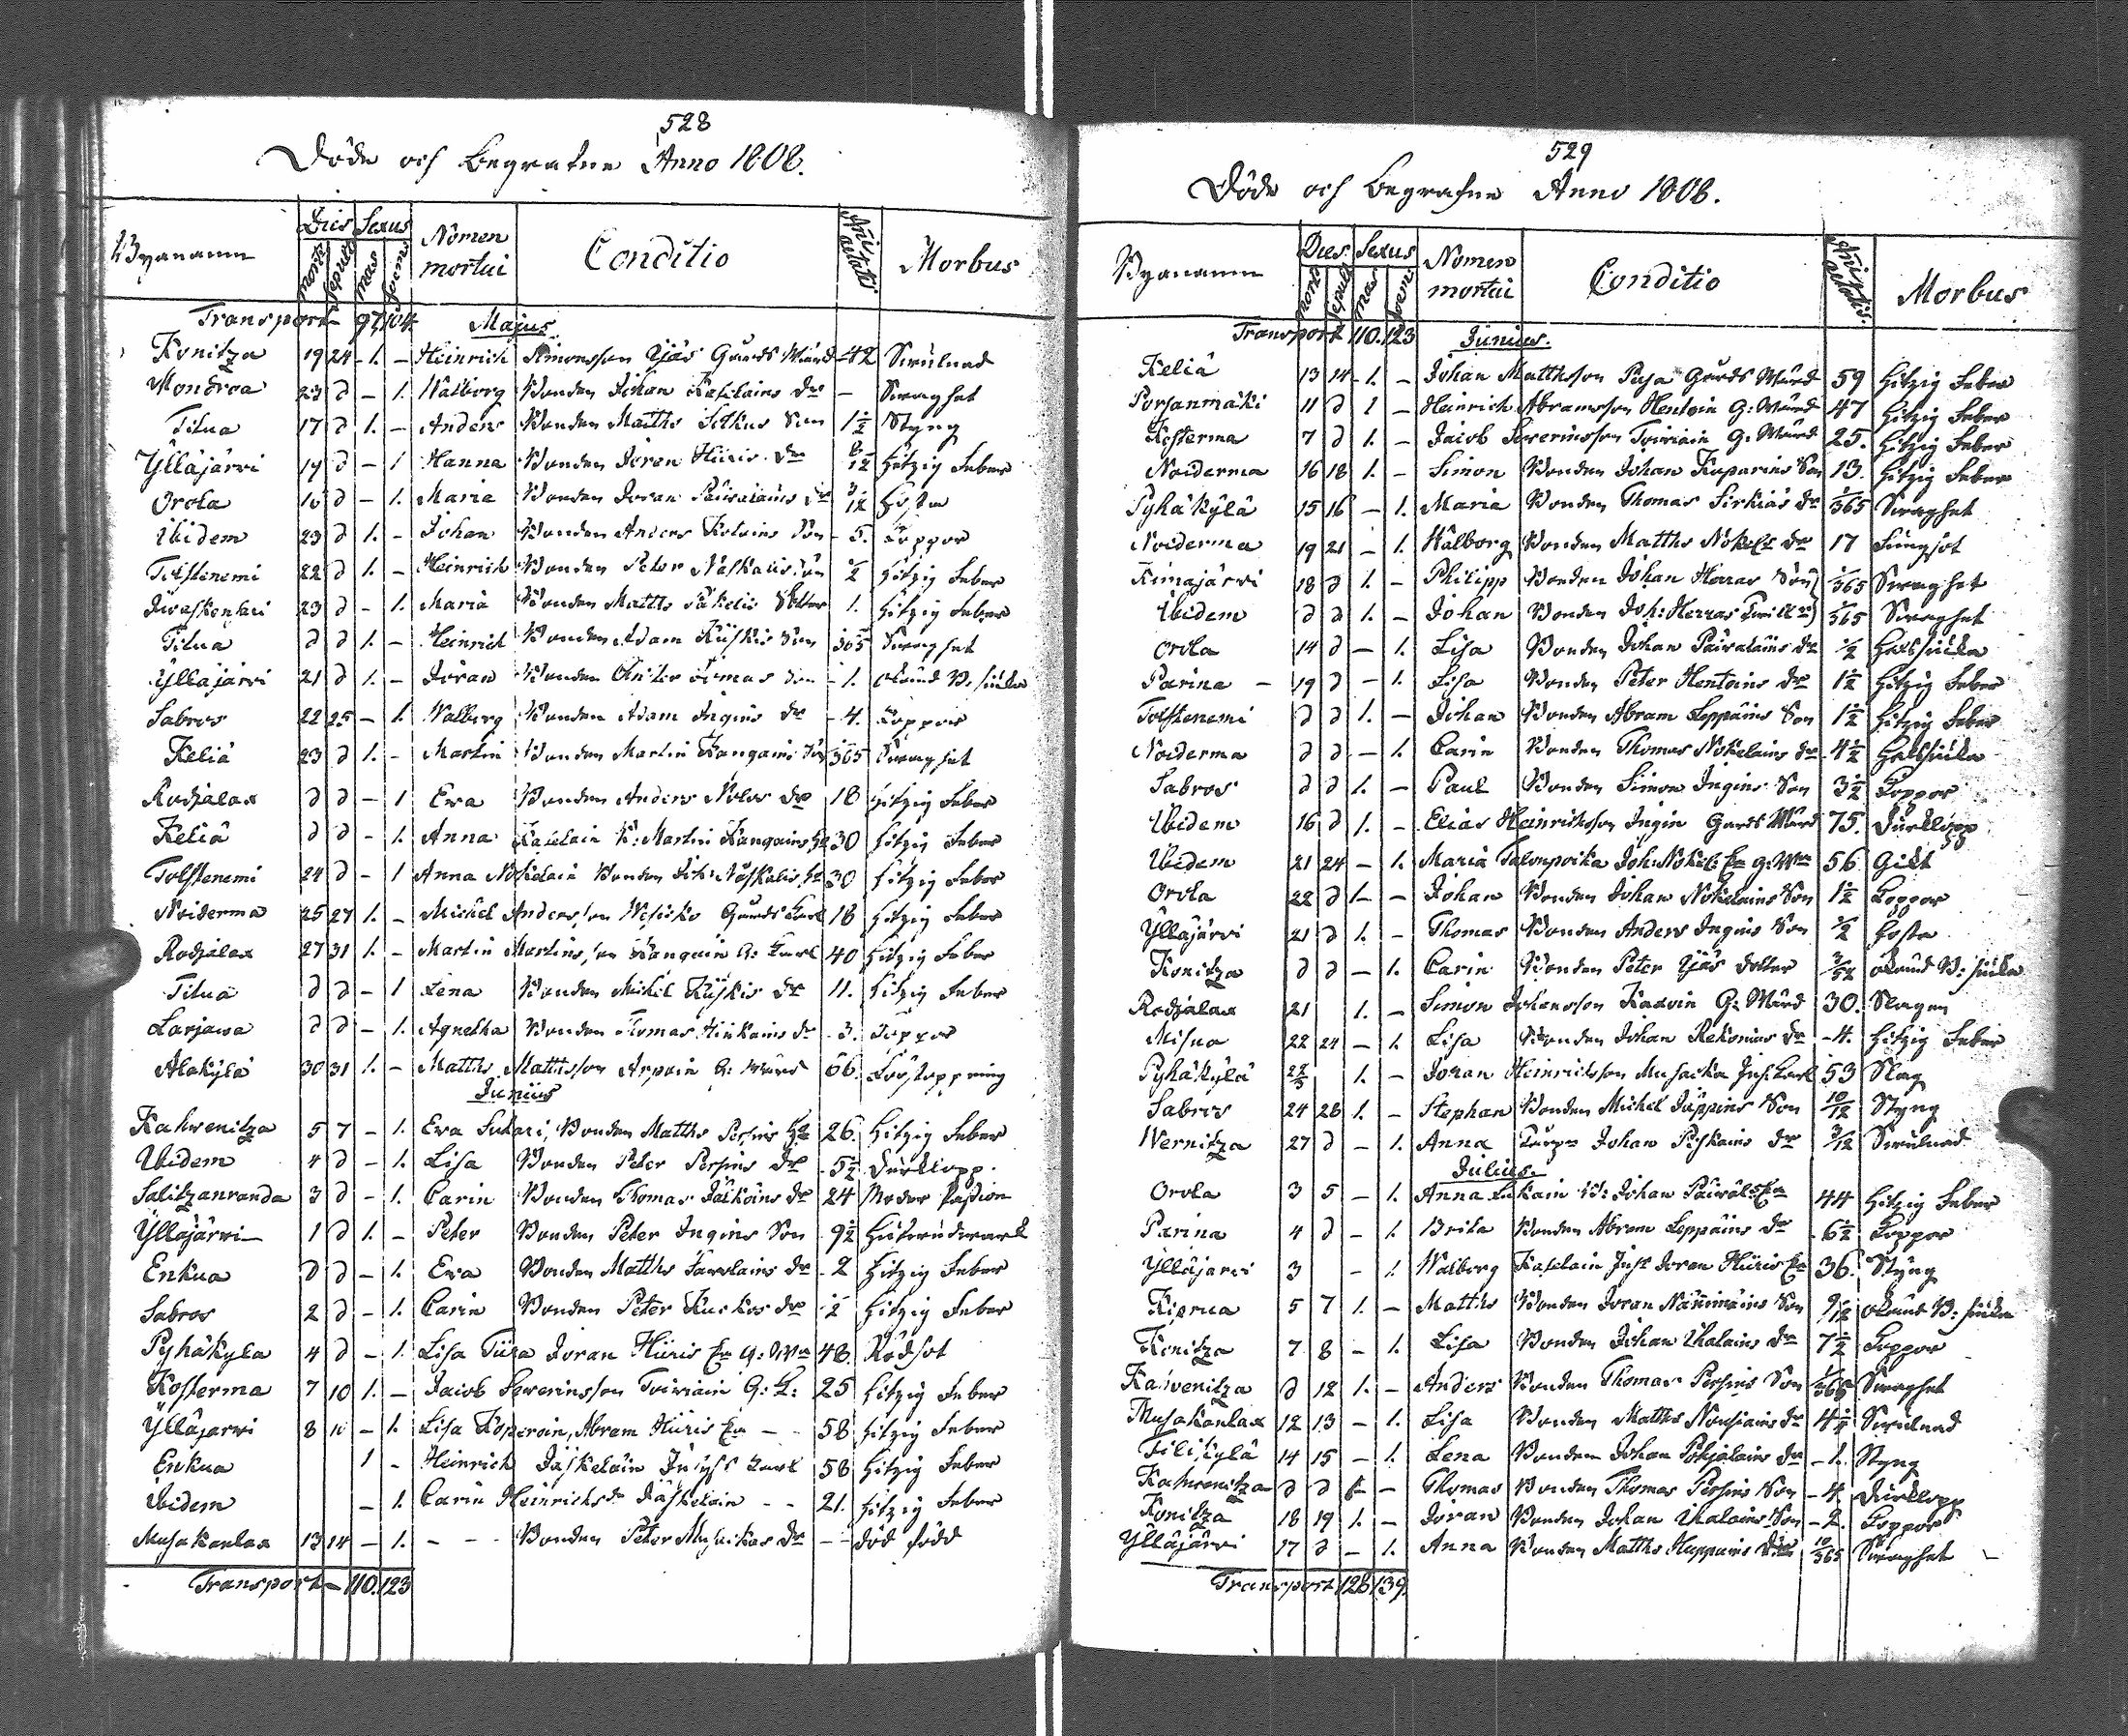 528
Döde och Begrafne Anno 1808.
Bynamn Dies Sexus Nomen mortui Conditio Anni aetatis Morbus
mortis sepult mas foem
Transport - 97 104. Majus
Konitza 19 24 - 1. - Heinrich Simonsson Yjäs Gårds Märd 42 Swulnad
Mondroa 23 d - 1. Walborg Bonden Johan Kaselains dr - Swaghet
Titua 17 d 1. - Anders Bonden Matths Son 1½ Styng
Ylläjärvi 14 d - 1 Hanna Bonden Jöran Hüris dr 8/12 hitzig feber
Orola 16 d - 1. Maria Bonden Joran Päiväläins dr 3/12 Hosta
Ibidem 23 d 1. - Johan Bonden Anders Son 5. Koppor
Tolstenemi 22 d 1. - Heinrich Bonden Peter Naskalis Son ½ hitzig feber
23 d - 1. Maria Bonden Matths Päkelis dotter 1. hitzig feber
Titua d d 1. - Heinrich Bonden Adam Kyskis Son Swaghet
Ylläjärvi 21 d 1. - Jöran Bonden Son - 1. okänd B: siuka
Sabros 22 25 - 1. Walborg Bonden Adam Ingins dr - 4. Koppor
Keliä 23 d 1. - Martin Bonden Martin Kangains Son Swaghet
Rodjalax d d - 1 Ewa Bonden Anders dr 18 hitzig feber
Keliä d d - 1. Anna Kaselain B: Martin Kangains 30 hitzig feber
Tolstenemi 24 d - 1 Anna Nokelain Bonden Joh: Naskalis 30 hitzig feber
Noiderma 25 27 1. - Michel Andersson Gårds Karl 18 hitzig feber
Rodjalax 27 31 1. - Martin Martinsson Kangain G: Karl 40 hitzig feber
Titua d d - 1 Lena Bonden Michel Kyskis dr 11. hitzig feber
Larjawa d d - 1. Agnetha Bonden Thomas Hinkains dr 3. Koppor
Alakylä 30 31 1. - Matths Matthsson Arpain G: Märd 66. Förstoppning
Junius
Kahwenitza 5 7 - 1. Ewa Sukari, Bonden Matths Persins 26. hitzig feber
Ibidem 4 d - 1. Lisa Bonden Peter Persins dr 5½ Durklopp.
Salitzanranda 3 d - 1. Carin Bonden Thomas Jälköins dr 24 Moder Passion
Ylläjärvi 1 d 1. - Peter Bonden Peter Ingins Son 9½
Enkua d d - 1. Ewa Bonden Matths Sawolains dr 2 hitzig feber
Sabros 2 d - 1. Carin Bonden Peter Kuckos dr ½ hitzig feber
Pyhäkylä 4 d - 1. Lisa Tüsa Joran Hüris En G: Wn 48. Rödsot
Kosterma 7 10 1. - Jacob Sewerinsson Toiviain G: K: 25 hitzig feber
Ylläjarvi 8 10 - 1. Lisa Koperoin, Abram Hüris En - - 58 hitzig feber
Enkua 1 - Heinrich Jäskeläin Inhyses karl 58 hitzig feber
Ibidem - 1. Carin Heinrichsdr Jäskelain - - 21. hitzig feber
Musakanlax 13 14 - 1. - - Bonden Peter Musikas dr - - död född
Transport - 110. 123
529
Döde och Begrafne Anno 1808.
Bynamn Dies Sexus Nomen mortui Conditio Anni aetatis. Morbus
mortis sepult mas foem
Transport 110. 123 Junius.
Keliä 13 14 - 1. - Johan Matthsson Puja Gårds Märd 59 hitzig feber
Porsanmäki 11 d 1 - Heinrich Abramsson Hentoin G: Märd 47 hitzig feber
Kosterma 7 d 1. - Jacob Sewerinsson Toiviain G: Märd 25. hitzig feber
Noiderma 16 18 1. - Simon Bonden Johan Kaparins Son 13. hitzig feber
Pyhäkylä 15 16 - 1. Maria Bonden Thomas Sirkiäs dr 1/365 Swaghet
Noiderma 19 21 - 1. Walborg Bonden Matths Nokels dr 17 Lungsot
Kimajärvi 18 d 1. - Philipp Bonden Johan Herras Son 1/365 Swaghet
Ibidem d d 1. - Johan Bonden Joh: Herras 1/365 Swaghet
Orola 14 d - 1. Lisa Bonden Johan Päiväläins dr ½ Halssiuka
Parina - 19 d - 1. Lisa Bonden Peter Hentoins dr 1½ hitzig feber
Tolstenemi d d 1. - Johan Bonden Abram Leppäins Son 1½ hitzig feber
Noiderma d d - 1. Carin Bonden Thomas Nokelains dr 4½ Halssiuka
Sabros d d 1. - Paul Bonden Simon Ingins Son 3½ Koppor
Ibidem 16 d 1. - Elias Heinrichsson Ingin Gårds Märd 75. Durklopp
Ibidem 21 24 - 1. Maria Talonpoika Joh: Nokel: En G: Wn 56 Gikt
Orola 22 d 1. - Johan Bonden Johan Nokelains Son 1½ Koppor
Ylläjärvi 21 d 1. - Thomas Bonden Anders Ingins Son ½ Hosta
Konitza d d - 1. Carin Bonden Peter Yjäs dotter 3/52 okänd B: siuka
Rodjalax 21 1. - Simon Johansson Kaxoin G: Märd 30. Slagen
Misua 22 24 - 1. Lisa Bonden Johan Rekonius dr - 4. hitzig feber
Pyhäkylä 22/5 1. - Joran Heinricksson Musacka Inh: karl 53 Slag
Sabros 24 28 1. - Stephan Bonden Michel Jäppins Son 10/12 Styng
Wernitza 27 d - 1. Anna Johan Piskains dr 3/12 Swulnad
Julius.
Orola 3 5 - 1. Anna Lukain B: Johan Päiväl: En 44 hitzig feber
Parina 4 d - 1. Brita Bonden Abram Leppäins dr 6½ Koppor
Ylläjarvi 3 - 1. Walborg Kaselain Inh: Joran Hüris En 36. Styng
Kiprua 5 7 1. - Matths Bonden Joran Nännimäins Son 9/12 okänd B: siuka
Konitza 7 8 - 1. Lisa Bonden Johan Ihalains dr 7½ Koppor
Kahvenitza d 12 1. - Anders Bonden Thomas Persins Son Swaghet
Musakanlax 12 13 - 1. Lisa Bonden Matths Nousiains dr 4½ Swulnad
14 15 - 1. Lena Bonden Johan Pohjolains dr - 1. Styng
Kahwenitza d d 1. - Thomas Bonden Thomas Persins Son - 4. Durklopp
Konitza 18 19 1. - Joran Bonden Johan Ihalains Son - 2. Koppor
Ylläjärvi 17 d - 1. Anna Bonden Matths Huppains dr 10/365 Swaghet
Transport 128 139.